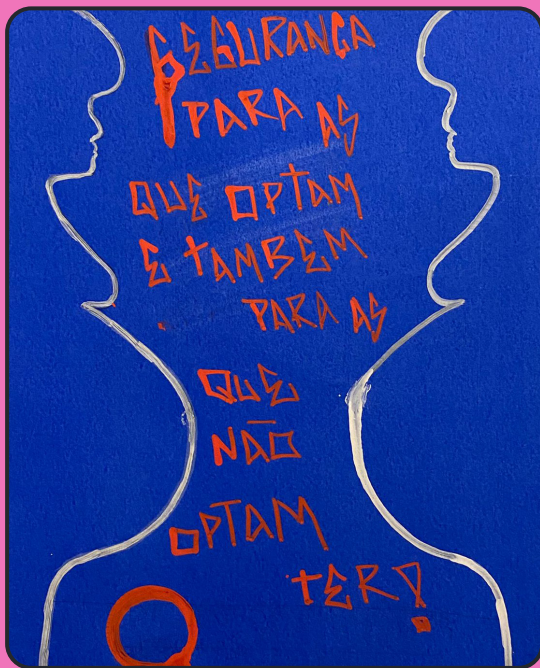 SEGURANÇA
PARA AS
QUE OPTAM
E TAMBEM
PARA AS
QUE
NÃO
OPTAM
TER!